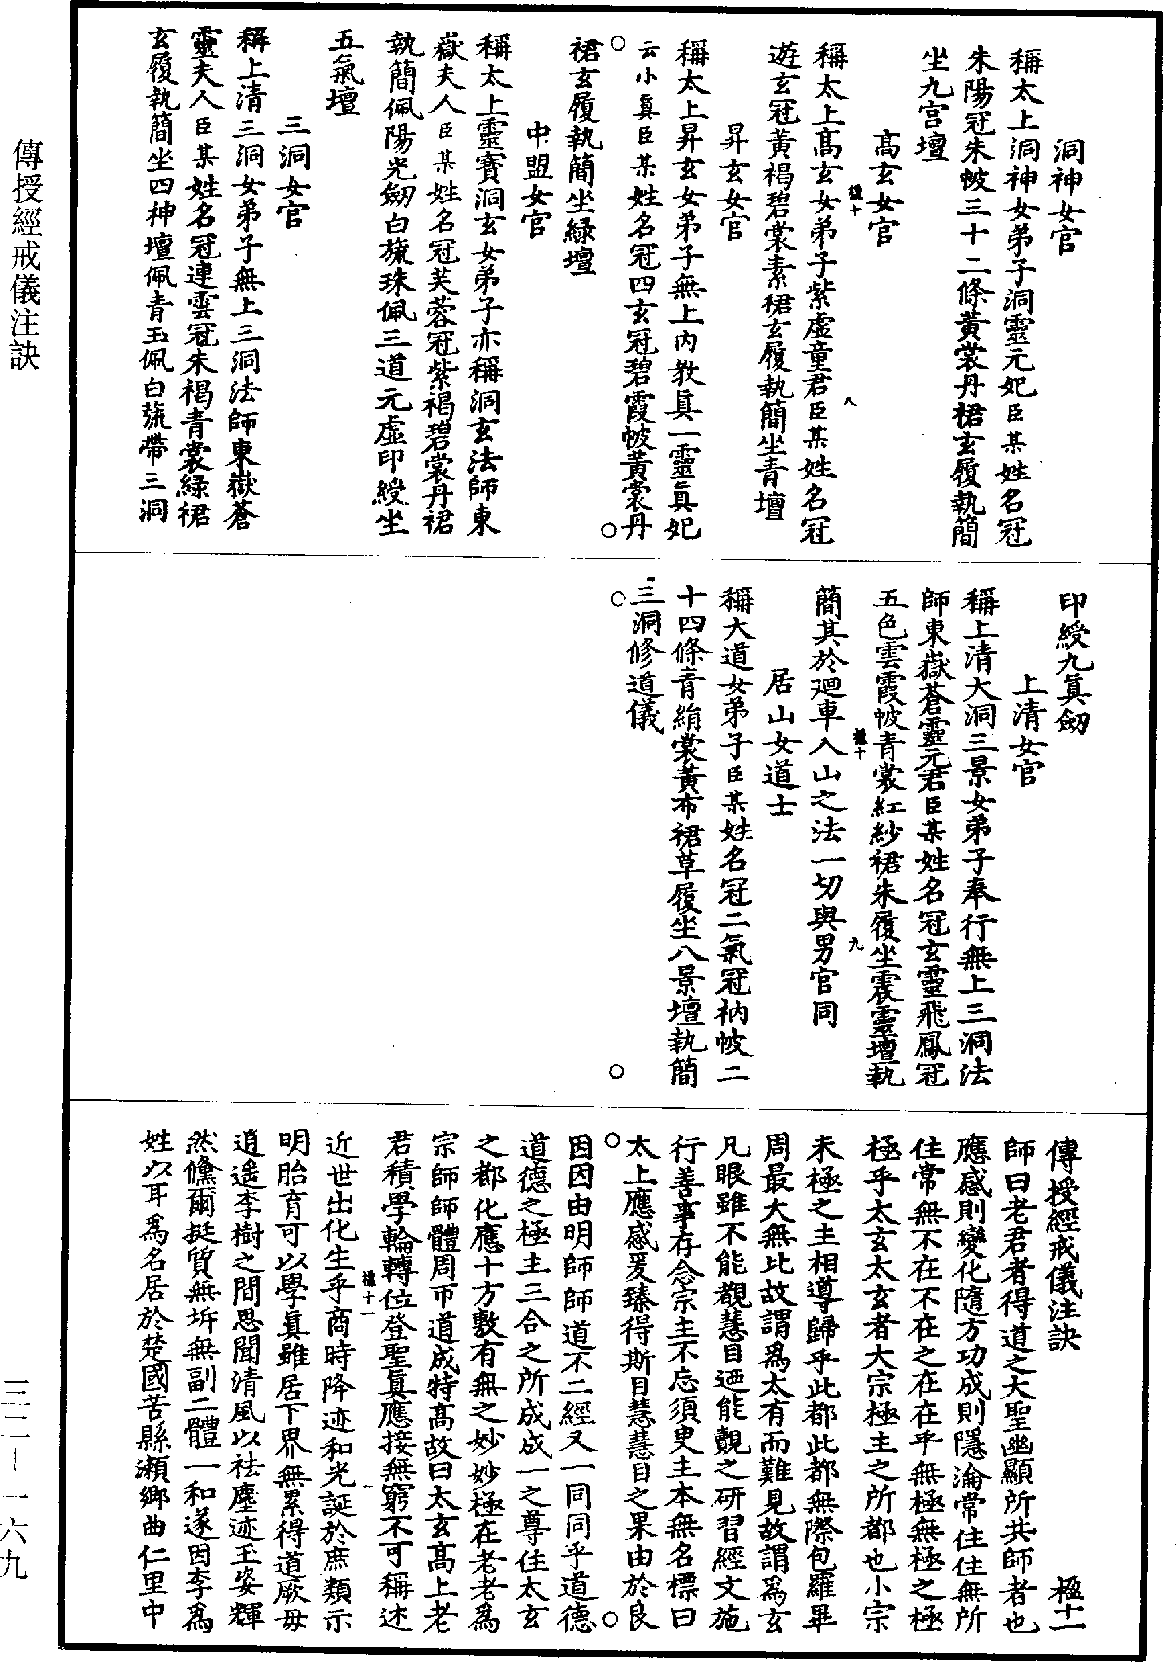 洞神女官
稱太上洞神女弟子洞靈元妃臣某姓名冠
朱陽冠朱帔三十二條黃裳丹裙玄履執簡
坐九宮壇
高玄女官
稱太上高玄女弟子紫虛童君臣某姓名冠
遊玄冠黃褐碧裳素裙玄履執簡坐青壇
昇玄女官
稱太上昇玄女弟子無上內教真一靈真妃
云小真臣某姓名冠四玄冠碧霞帔黃裳丹
裙玄履執簡坐綠壇
中盟女官
稱太上靈寶洞玄女弟子亦稱洞玄法師東
嶽夫人臣某姓名冠芙蓉冠紫褐碧裳丹裙
執簡佩陽光劒白旒珠佩三道元虛印綬坐
五氣壇
三洞女官
稱上清三洞女弟子無上三洞法師東嶽蒼
靈夫人臣某姓名冠連雲冠朱褐青裳綠裙
玄履執簡坐四神壇佩青玉佩白旒帶三洞
印綬九真劒
上清女官
稱上清大洞三景女弟子奉行無上三洞法
師東嶽蒼靈元君臣某姓名冠玄靈飛鳳冠
五色雲霞帔青裳紅紗裙朱履坐震靈壇執
簡其於廻車入山之法一切與男官同
居山女道士
稱大道女弟子臣某姓名冠二氣冠衲帔二
十四條青絹裳黃布裙草履坐八景壇執簡
三洞修道儀
傳授經戒儀注訣
極十一
師曰老君者得道之大聖幽顯所共師者也
應感則變化隨方功成則隱淪常住住無所
住常無不在不在之在在乎無極無極之極
極乎太玄太玄者大宗極主之所都也小宗
未極之主相導歸乎此都此都無際包羅畢
周最大無比故謂為太有而難見故謂為玄
凡眼雖不能覩慧目迺能覿之研習經文施
行善事存念宗主不忘須臾主本無名標曰
太上應感爰臻得斯目慧慧目之果由於良
因因由明師師道不二經又一同同乎道德
道德之極主三合之所成成一之尊住太玄
之都化應十方敷有無之妙妙極在老老為
宗師師體周帀道成特高故曰太玄高上老
君積學輪轉位登聖真應接無窮不可稱述
近世出化生乎商時降迹和光誕於庶類示
明胎育可以學真雖居下界無累得道厥母
逍遙李樹之間思聞清風以袪塵迹玉姿輝
然儵爾挺質無坼無副二體一和遂因李為
姓以耳為名居於楚國苦縣瀬鄉曲仁里中
傳授經戒儀注訣
三二－一六九